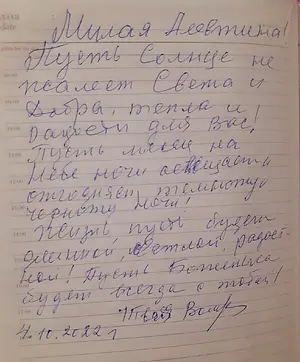 Милая Алевтина!
Пусть Солнце не
жалеет Света и
Добра, тепла и
Радости для Вас!
Пусть месяц на
Небе ночи освещает и
отгоняет темноту
черноту ночи!
Жизнь пусть будет
длинной, светлой, радост
ной! Пусть Боженька
будет всегда с тобой!
4.10.2022 г